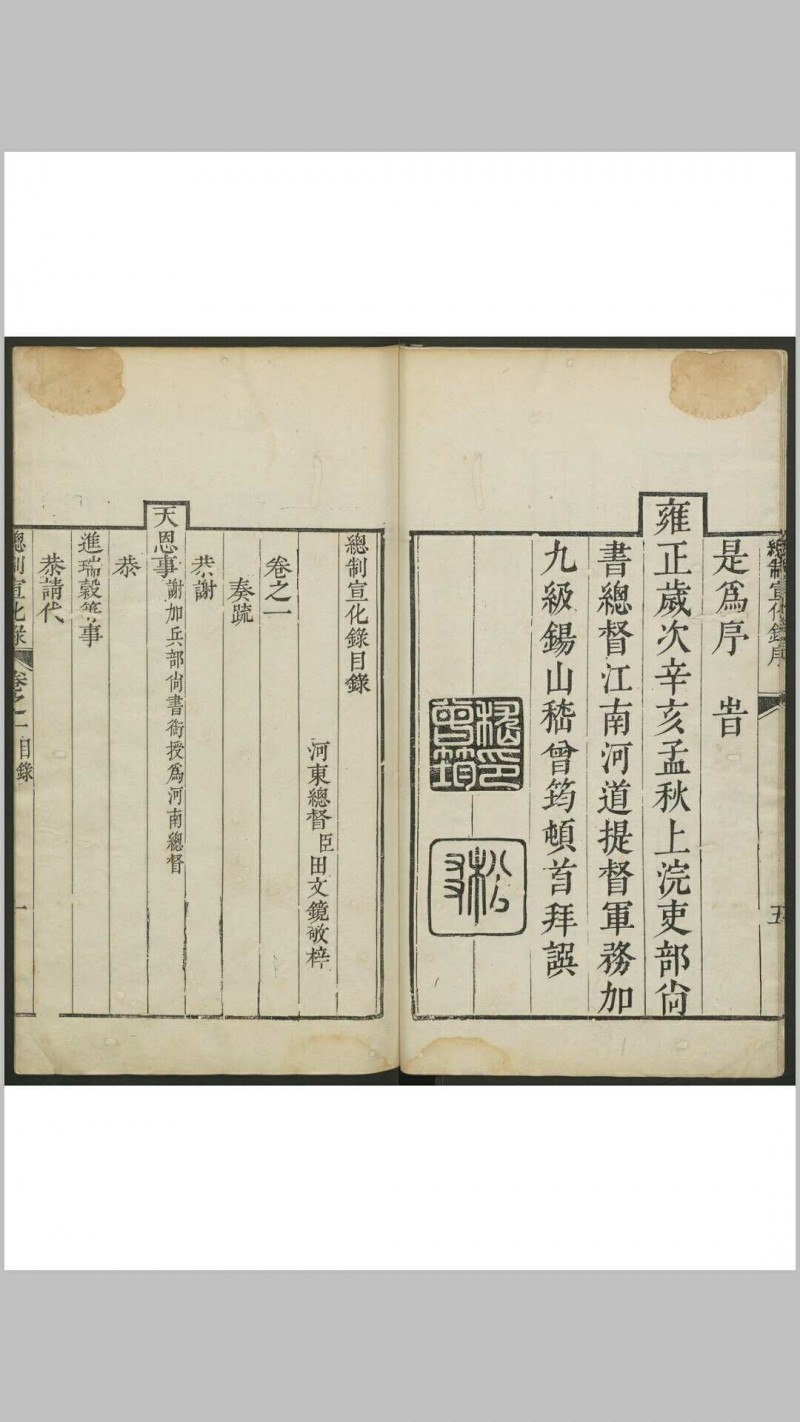 總制宣化錄序
五
是爲序 旹
雍正歲次辛亥孟秋上浣吏部尚
書總督江南河道提督軍務加
九級錫山嵇曾筠頓首拜譔
嵇曾筠印
松友
總制宣化錄目錄
河東總督臣田文鏡敬梓
卷之一
奏疏
恭謝
天恩事謝加兵部尚書銜授爲河南總督
恭
進瑞穀等事
恭請代
總制宣化錄
卷之一目錄
一